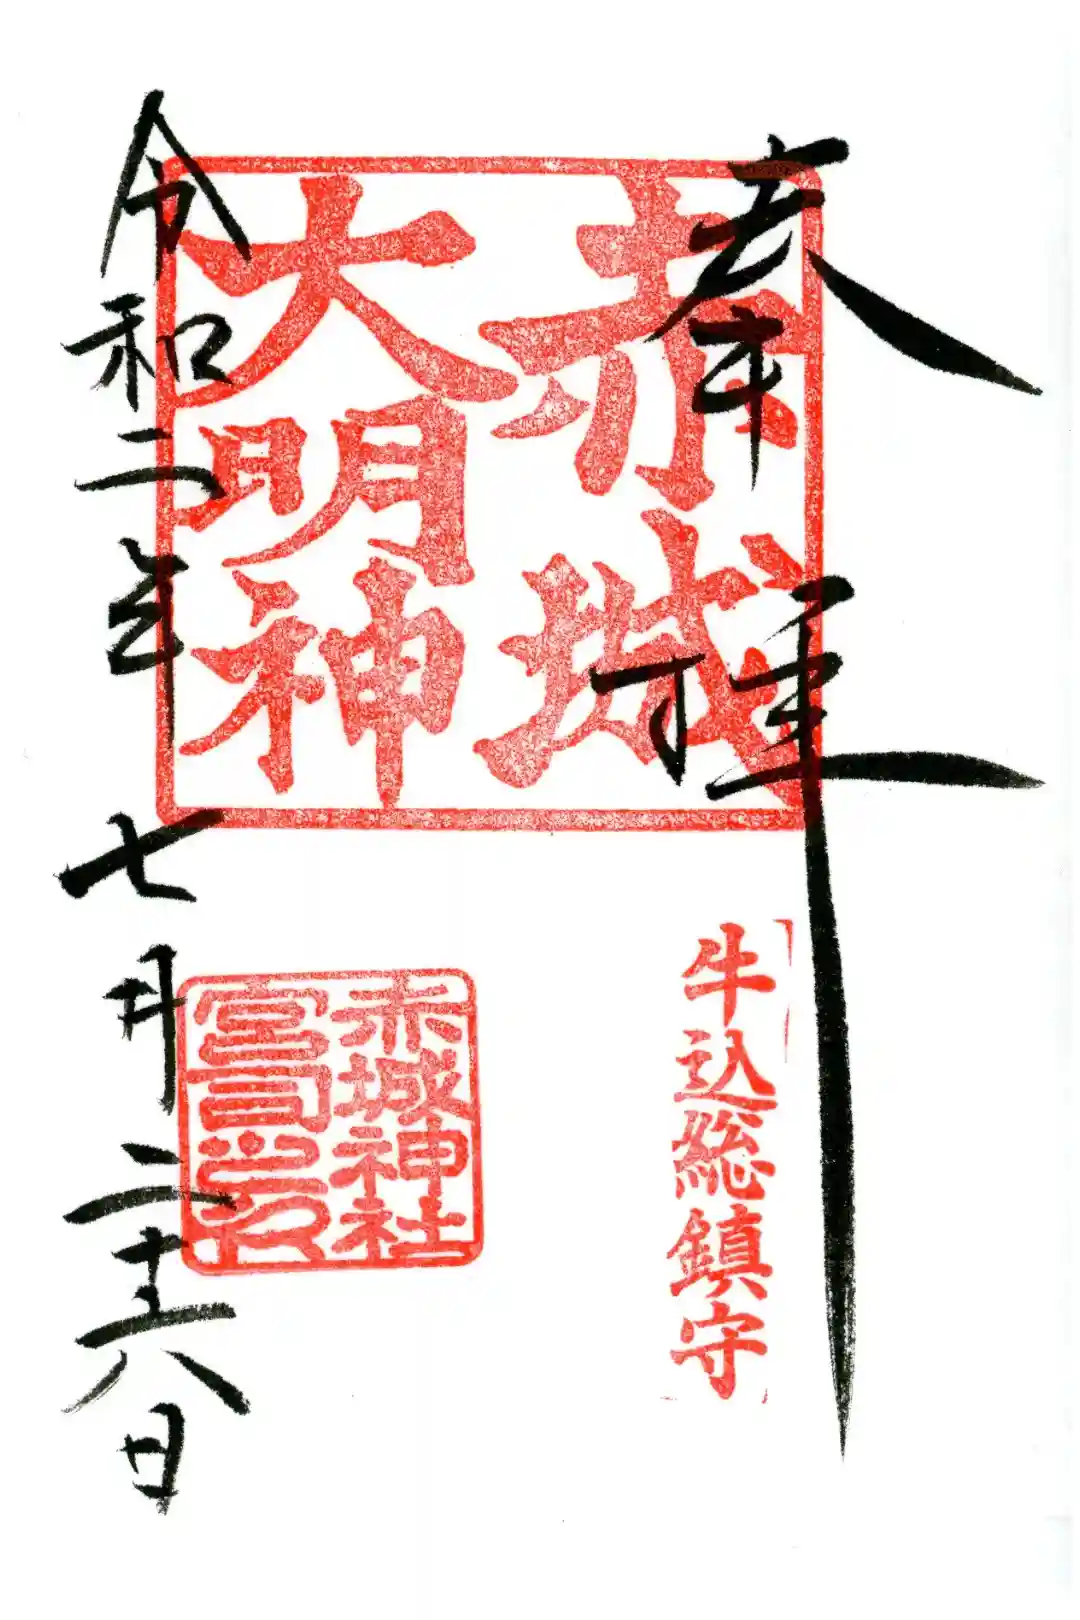 奉拝
赤城
大明神
牛込総鎮守
赤城神社
宮司之印
令和二年七月二十六日